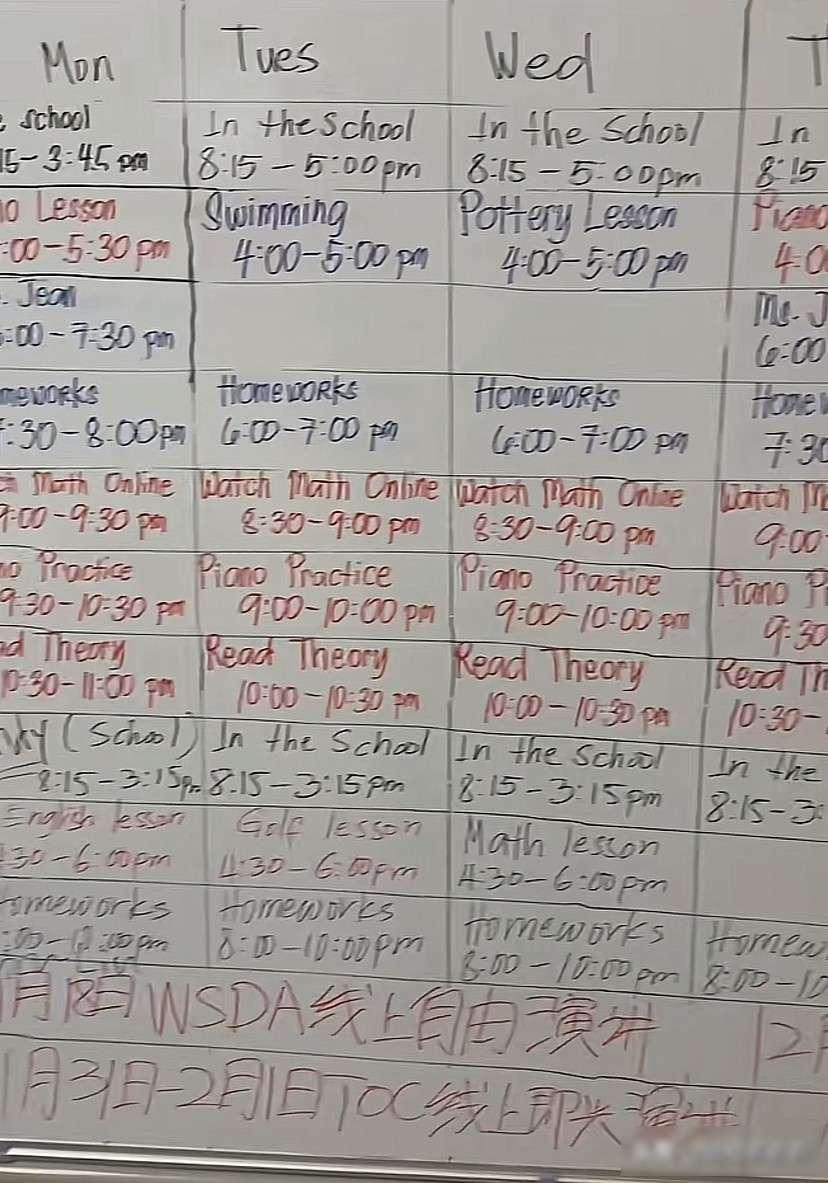 Mon Tues Wed T
school In the School In the School In
15-3:45 pm 8:15 - 5:00pm 8:15 - 5:00pm 8:15
o Lesson Swimming Pottery Lesson Piano
:00-5:30 pm 4:00-5:00 pm 4:00-5:00 pm 4:0
. Jean Ms. J
:00-7:30 pm 6:00
meworks Homeworks Homeworks Homew
:30-8:00pm 6:00-7:00 pm 6:00-7:00 pm 7:30
Math Online Watch Math Online Watch Math Online Watch M
9:00-9:30 pm 8:30-9:00 pm 8:30-9:00 pm 9:00
no Practice Piano Practice Piano Practice Piano P
9:30-10:30 pm 9:00-10:00 pm 9:00-10:00 pm 9:30
ad Theory Read Theory Read Theory Read Th
10:30-11:00 pm 10:00-10:30 pm 10:00-10:30 pm 10:30-
(School) In the School In the School In the
8:15-3:15pm 8:15-3:15pm 8:15-3:15pm 8:15-3:
English lesson Golf lesson Math lesson
:30-6:00pm 4:30-6:00pm 4:30-6:00pm
omeworks Homeworks Homeworks Homew
:00-10:00pm 8:00-10:00pm 8:00-10:00pm 8:00-10
月18日WSDA线上自由演讲 12月
1月31日-2月1日TOC线上即兴演讲